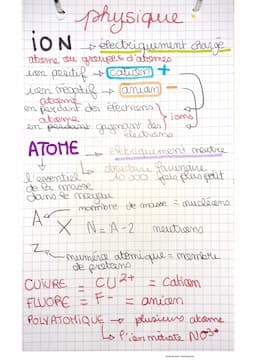 physique
ION → électriquement chargé
atome ou groupes d'atomes
ion positif → cation +
ion négatif → anion −
atome
en perdant des électrons } ions
atome
en gagnant des électrons
ATOME → électriquement neutre
l'essentiel de la masse dans le noyau
structure lacunaire
10 000 fois plus petit
A ← nombre de masse = nucléons
X N = A - Z neutrons
Z ← numéro atomique = nombre de protons
CUIVRE = CU2+ = cation
FLUORE = F- = anion
POLYATOMIQUE → plusieurs atome
↳ l'ion nitrate NO3-